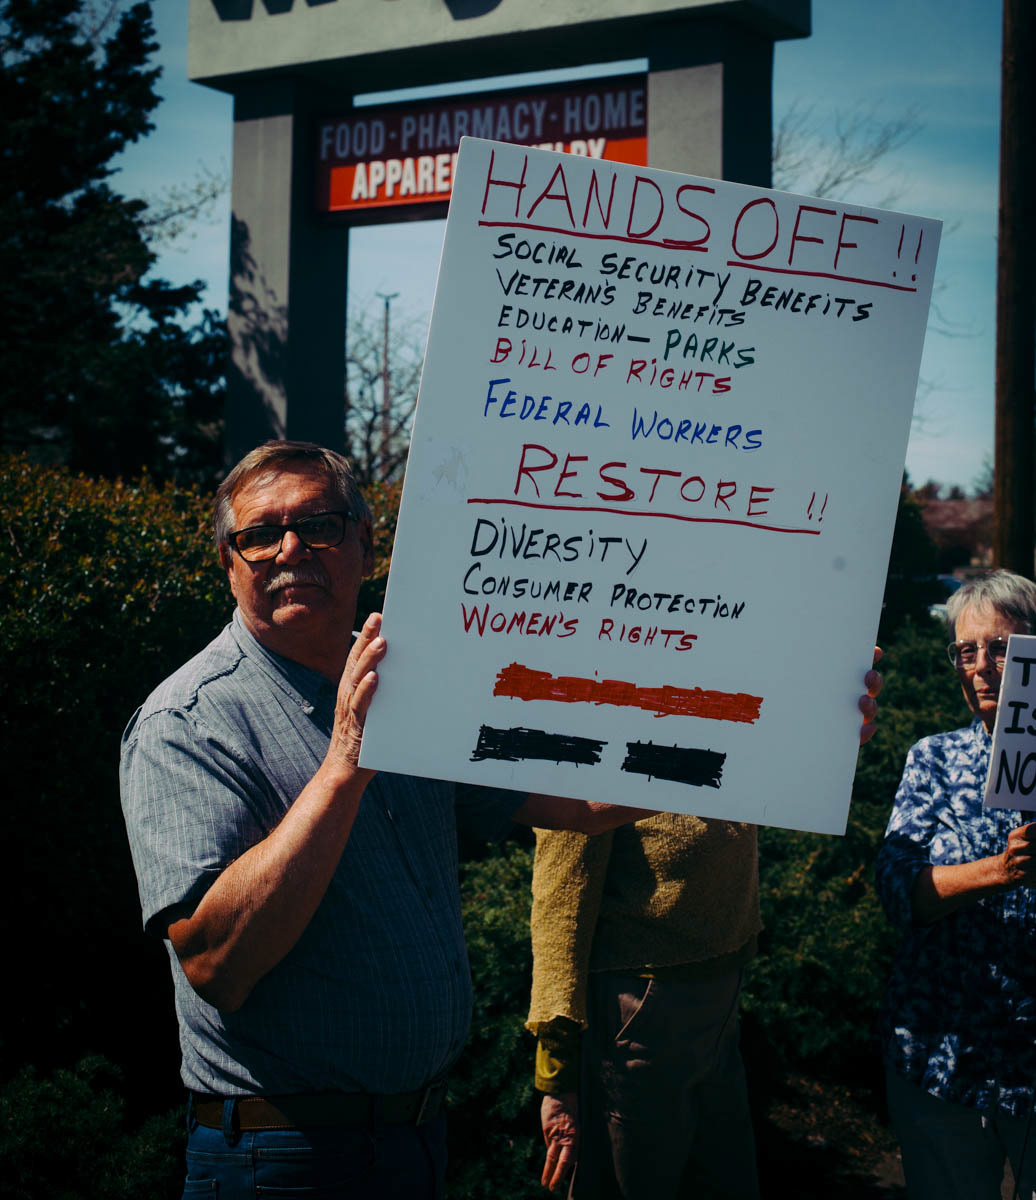 FOOD · PHARMACY · HOME
HANDS OFF!!
SOCIAL SECURITY BENEFITS
VETERAN'S BENEFITS
EDUCATION — PARKS
BILL OF RIGHTS
FEDERAL WORKERS
RESTORE !!
DIVERSITY
CONSUMER PROTECTION
WOMEN'S RIGHTS
NO